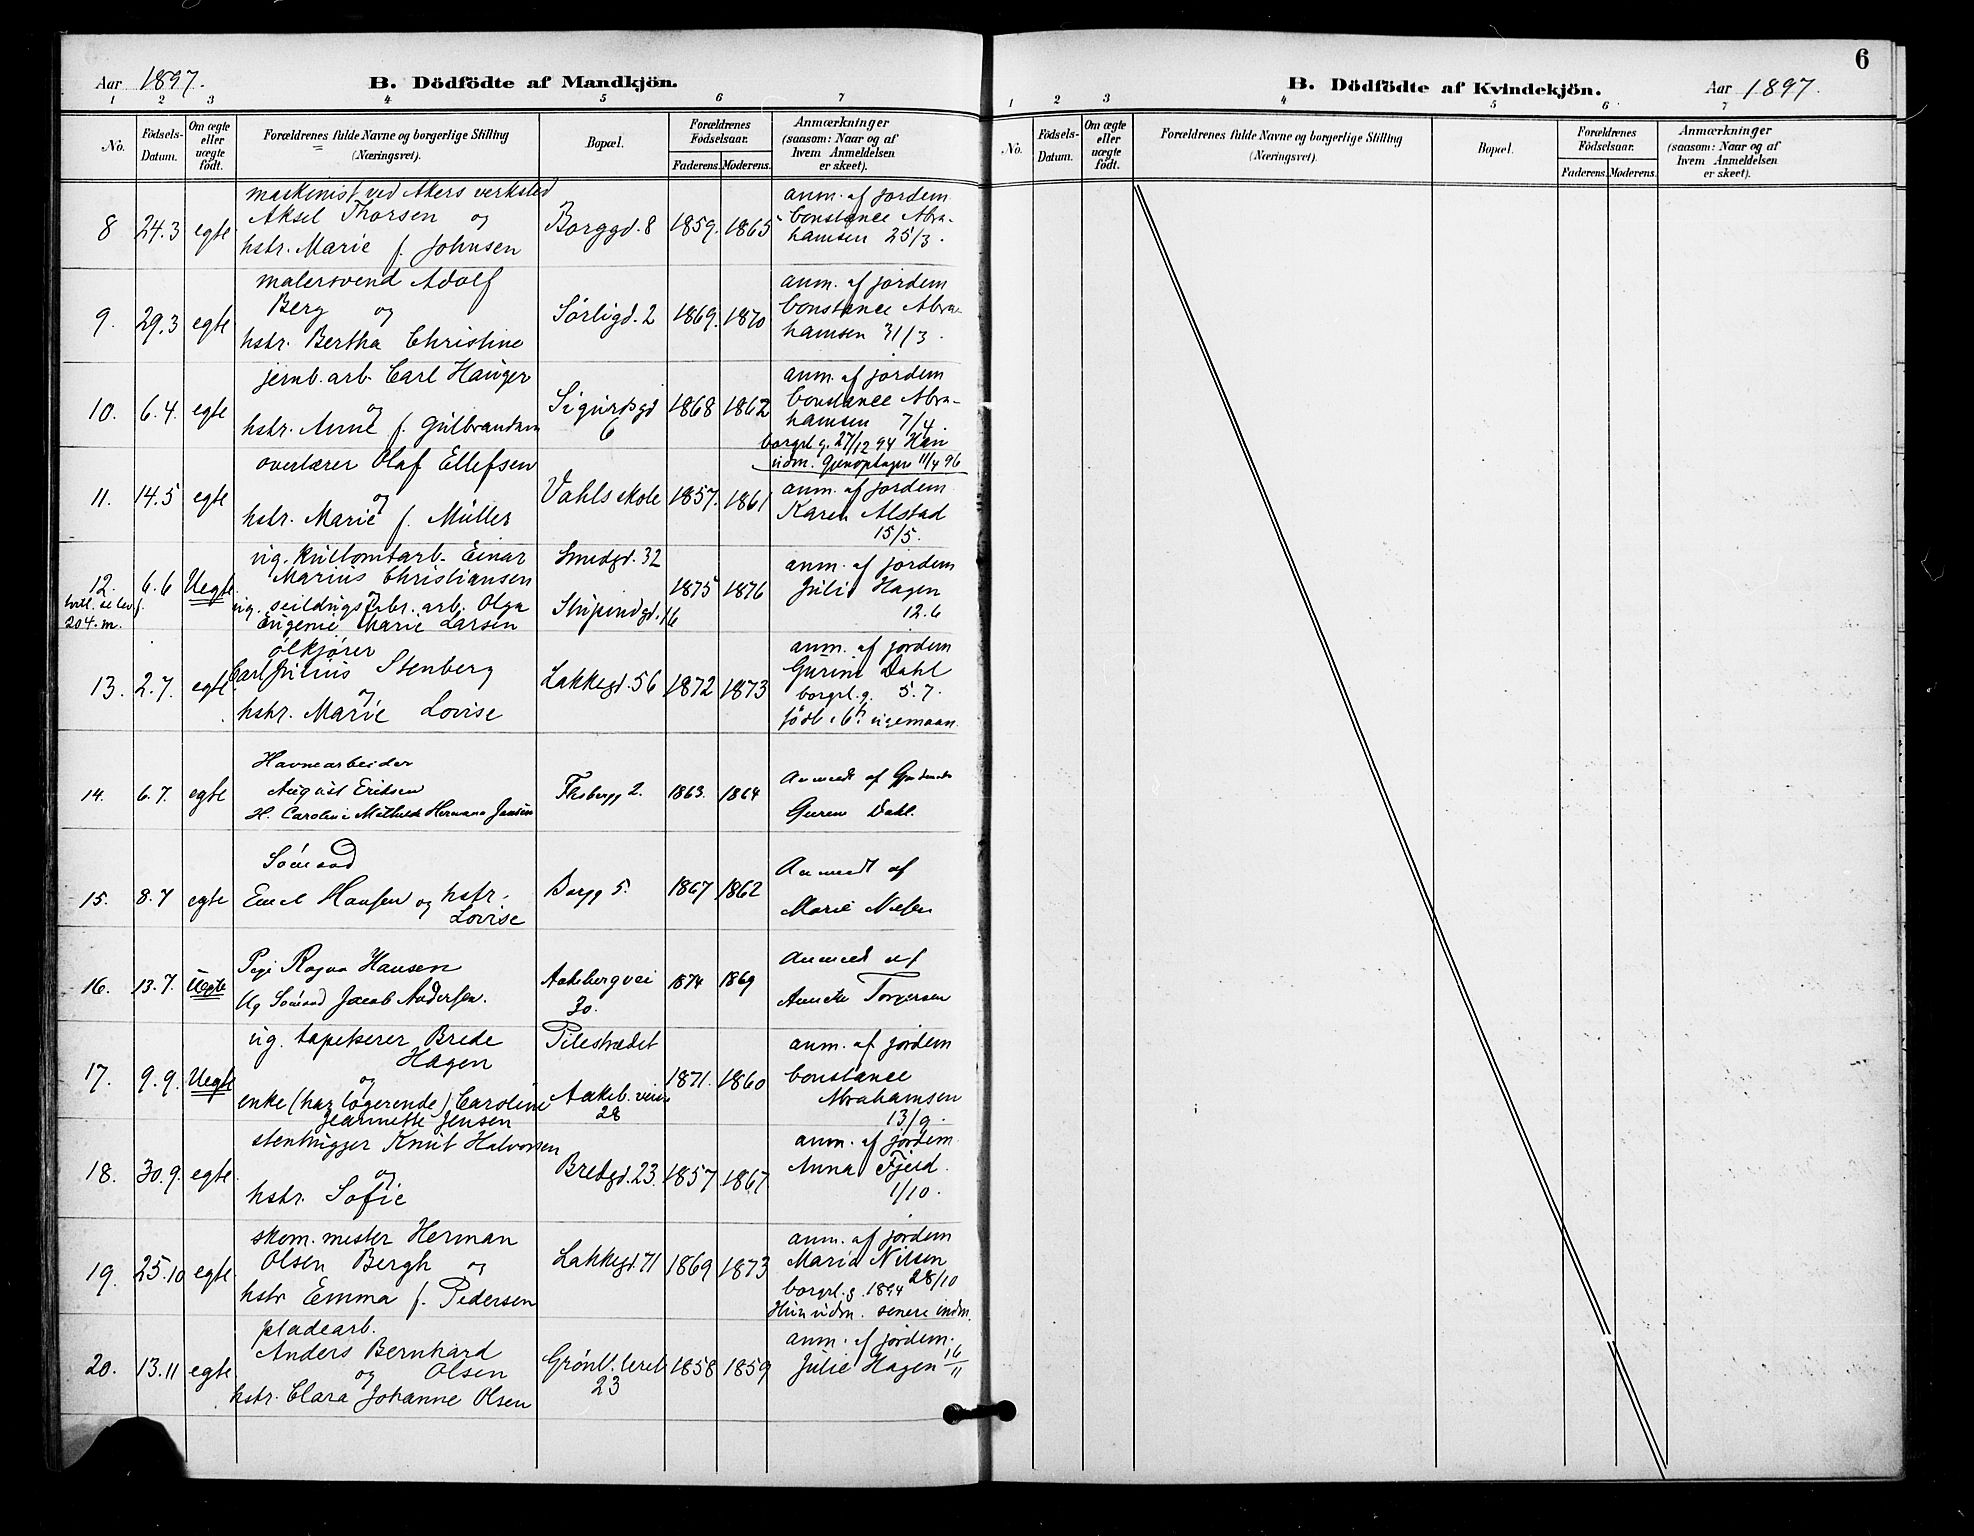 Aar 1897. B. Dödfödte af Mandkjön.
1 2 3 4 5 6 7
No. Födsels-Datum. Om ægte eller uægte födt. Forældrenes fulde Navne og borgerlige Stilling (Næringsvei). Bopæl. Forældrenes Födselsaar. Faderens. Moderens. Anmærkninger (saasom: Naar og af hvem Anmeldelsen er skeet).
maskinist ved Akers verksted anm. af jordem
8 24.3 egte Aksel Thorsen og Borggd. 8 1859. 1865 Constance Abra-
hstr. Marie f. Johnsen hamsen 25/3.
malersvend Adolf anm. af jordem
9. 29.3 egte Berg og Sörligd. 2 1869. 1870 Constance Abra-
hstr. Bertha Christine hamsen 31/3.
jernb. arb. Carl Hauger anm. af jordem
10. 6.4. egte og Sigurdsgd 6 1868 1862 Constance Abra-
hstr. Anne f. Gulbrandsen hamsen 7/4.
borgrl. g. 27/12 94 Han
overlærer Olaf Ellefsen udm. Gjenoptagen 11/4 96
11. 14.5 egte og Vahls skole 1857. 1861 anm. af jordem
hstr. Marie f. Müller Karen Alstad
15/5.
ug. kultomtarb. Einar Smedgd. 32 anm. af jordem
12. 6.6 Uegte Marius Christiansen 1875 1876 Julie Hagen
og
ug. seildugsfabr. arb. Olga Stupindgd. 16 12.6
204. m. Eugenie Marie Larsen
ölkjører anm. af jordem
13. 2.7. egte Carl Julius Stenberg Lakkegd. 56 1872 1873 Gurine Dahl
og borgrl. g. 5.7.
hstr. Marie Lovise født i 6te
Havnearbeider
14. 6.7. egte August Eriksen 2. 1863. 1864 Anmeldt af
H. Caroline Mathilde Hermana Jensen Gurine Dahl.
Sömand
15. 8.7 egte Emil Hansen og hstr. Borgg 5. 1867 1862 Anmeldt af
Lovise Marie Nielsen
Pige Ragna Hansen Anmeldt af
16. 13.7. Uegte Ug Sömand Jacob Andersen. Aakebergvei 30. 1874 1869 Annette Torgersen
ug. tapetserer Brede Pilestrædet anm. af jordem
Hagen
17. 9.9. Uegte og 1871. 1860 Constance
enke (har logerende) Caroline Aakeb. veien 28 Abrahamsen
Jeannette Jensen 13/9.
stenhugger Knut Halvorsen anm. af jordem
18. 30.9. egte og Bredgd. 23. 1857 1867 Anna Fjeld.
hstr. Sofie 1/10.
skom. mester Herman anm. af jordem
19. 25.10 egte Olsen Bergh og Lakkegd. 71 1869 1873 Maria Nilsen
28/10
hstr Emma f. Pedersen borgrl. g. 1894
Hun udm. senere indm.
pladearb. anm. af jordem.
20. 13.11 egte Anders Bernhard Grönl. leret 23 1858 1859 Julie Hagen 16/11
og Olsen
hstr. Clara Johanne Olsen
6
B. Dödfödte af Kvindekjön. Aar 1897.
1 2 3 4 5 6 7
No. Födsels-Datum. Om ægte eller uægte födt. Forældrenes fulde Navne og borgerlige Stilling (Næringsvei). Bopæl. Forældrenes Födselsaar. Faderens. Moderens. Anmærkninger (saasom: Naar og af hvem Anmeldelsen er skeet).